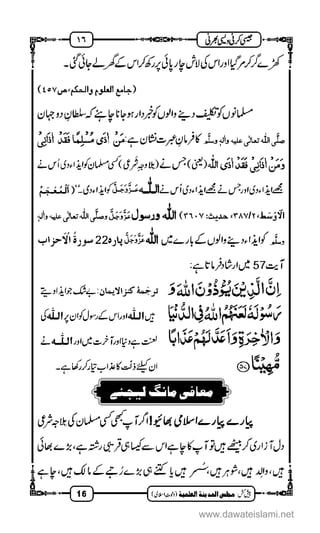 ١٦ جیسی کرنی ویسی بھرنی
کھڑے گر کر مر گیا اور اس کی لاش چارپائی پر رکھ کر اس کے گھر لے جائی گئی۔
(جامع العلوم والحکم، ص٤٥٧)
مسلمانوں کو تکلیف دینے والوں کو خبردار ہو جانا چاہئے کہ سلطانِ دو جہان
صلَّی اللہ تعالٰی علیہ واٰلہٖ وسلَّم کا فرمانِ عبرت نشان ہے: مَنْ اٰذَی مُسْلِمًا فَقَدْ اٰذَانِیْ
وَمَنْ اٰذَانِیْ فَقَدْ اٰذَی اللہ (یعنی) جس نے (بلاوجہِ شرعی) کسی مسلمان کو ایذاء دی اُس نے
مجھے ایذاء دی اور جس نے مجھے ایذاء دی اُس نے اللہ عَزَّوَجَلَّ کو ایذاء دی۔ (اَلْمُعْجَمُ
الْاَوْسَط، ٣٨٧/٢، حدیث: ٣٦٠٧) اللہ ورسول عَزَّوَجَلَّ وصلَّی اللہ تعالٰی علیہ واٰلہٖ
وسلَّم کو ایذاء دینے والوں کے بارے میں اللہ عَزَّوَجَلَّ پارہ 22 سورۃُ الْاَحزاب
آیت 57 میں ارشاد فرماتا ہے:
اِنَّ الَّذِیْنَ یُؤْذُوْنَ اللّٰهَ وَ
رَسُوْلَهٗ لَعَنَهُمُ اللّٰهُ فِی الدُّنْیَا
وَ الْاٰخِرَةِ وَ اَعَدَّ لَهُمْ عَذَابًا
مُّهِیْنًا ﴿٥٧﴾
ترجَمۂ کنز الایمان: بے شک جو ایذا دیتے
ہیں اللہ اور اس کے رسول کو ان پر اللہ کی
لعنت ہے دنیا اور آخرت میں اور اللہ نے
ان کیلئے ذلّت کا عذاب تیار کر رکھا ہے۔
معافی مانگ لیجئے
پیارے پیارے اسلامی بھائیو! اگر آپ کبھی کسی مسلمان کی بلاوجہِ شرعی
دل آزاری کر بیٹھے ہیں تو آپ کا چاہے اس سے کیسا ہی قریبی رشتہ ہے، بڑے بھائی
ہیں، والد ہیں، شوہر ہیں، سُسر ہیں یا کتنے ہی بڑے رُتبے کے مالک ہیں، چاہے
پیش کش: مجلس المدینۃ العلمیۃ (دعوتِ اسلامی)
16
www.dawateislami.net